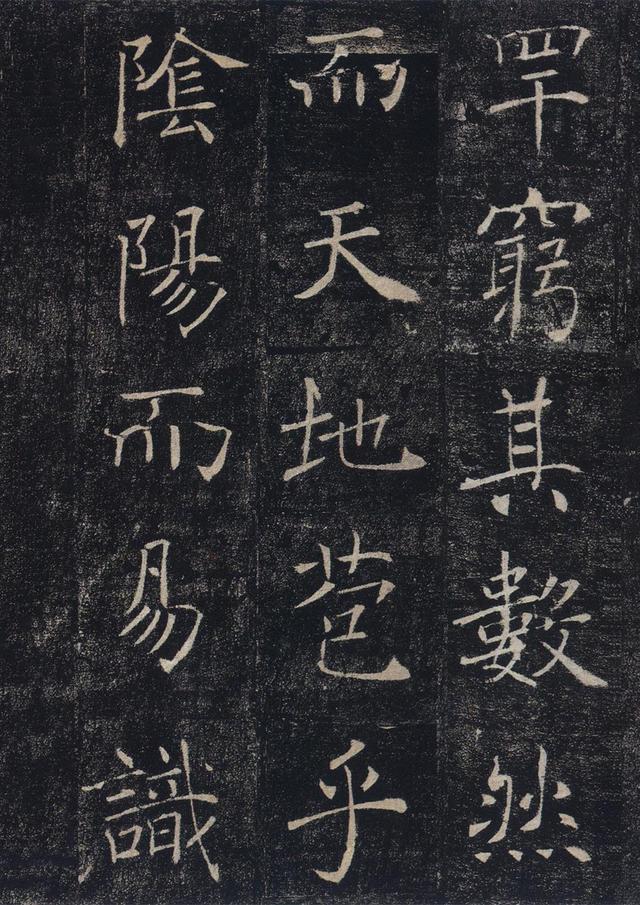 罕窮其數然
而天地苞乎
陰陽而易識